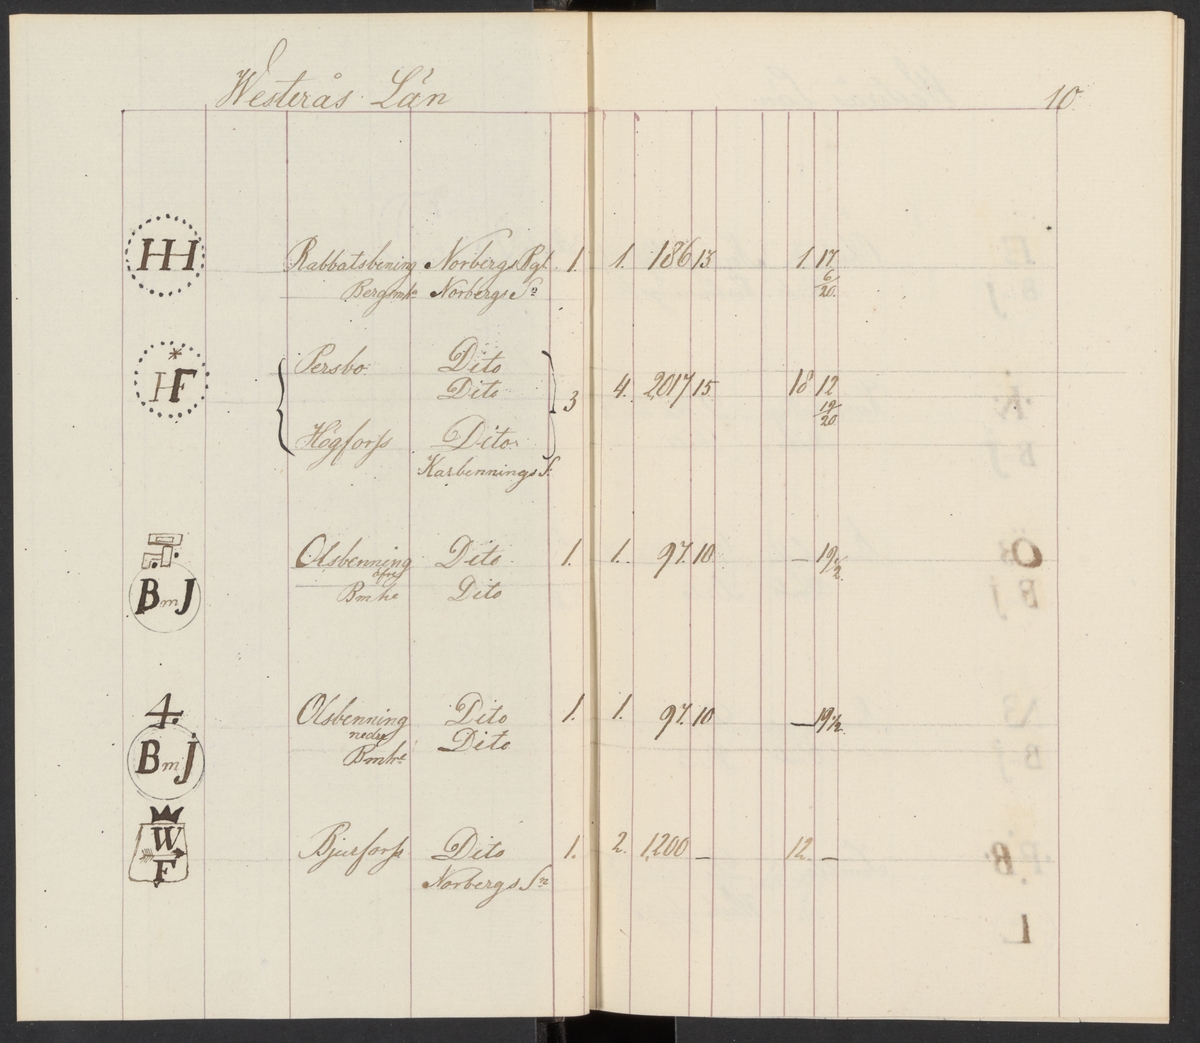 Westerås Län
10
HH Rabbatsbening Norbergs Bgl. 1. 1. 186 13 1 17 6/20
Bergsmhe Norbergs Sn
HF Persbo Dito
Dito 3 4. 2017 15 18 12 19/20
Högforss Dito
Karbennings S.
Olsbenning Dito 1. 1. 97. 10 — 19 1/2.
öfre
BmJ Bmhe Dito
4. Olsbenning Dito 1. 1. 97. 10 — 19 1/2.
nedre Dito
BmJ Bmhe
W F Bjurforss Dito 1. 2. 1,200 — 12. —
Norbergs Sn